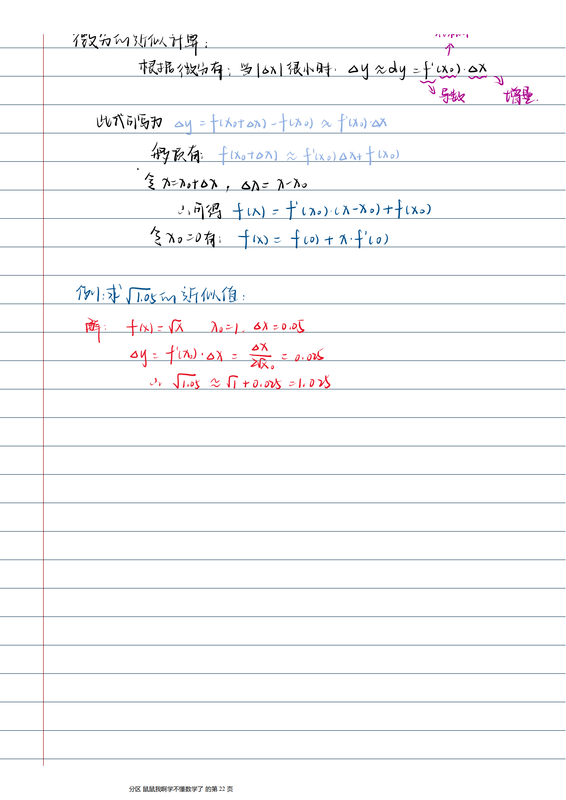 微分的近似计算:
根据微分有: 当|Δx|很小时. Δy≈dy=f'(x₀)·Δx
导数 增量
此式可写为 Δy=f(x₀+Δx)-f(x₀)≈f'(x₀)·Δx
有: f(x₀+Δx)≈f'(x₀)Δx+f(x₀)
令x=x₀+Δx, Δx=x-x₀
∴可得 f(x)=f'(x₀)·(x-x₀)+f(x₀)
令x₀=0有: f(x)=f(0)+x·f'(0)
例1:求√1.05的近似值:
解: f(x)=√x x₀=1. Δx=0.05
Δy=f'(x₀)·Δx=Δx/2√x₀=0.025
∴ √1.05≈√1+0.025=1.025
分区 鼠鼠我啊学不懂数学了 的第 22 页